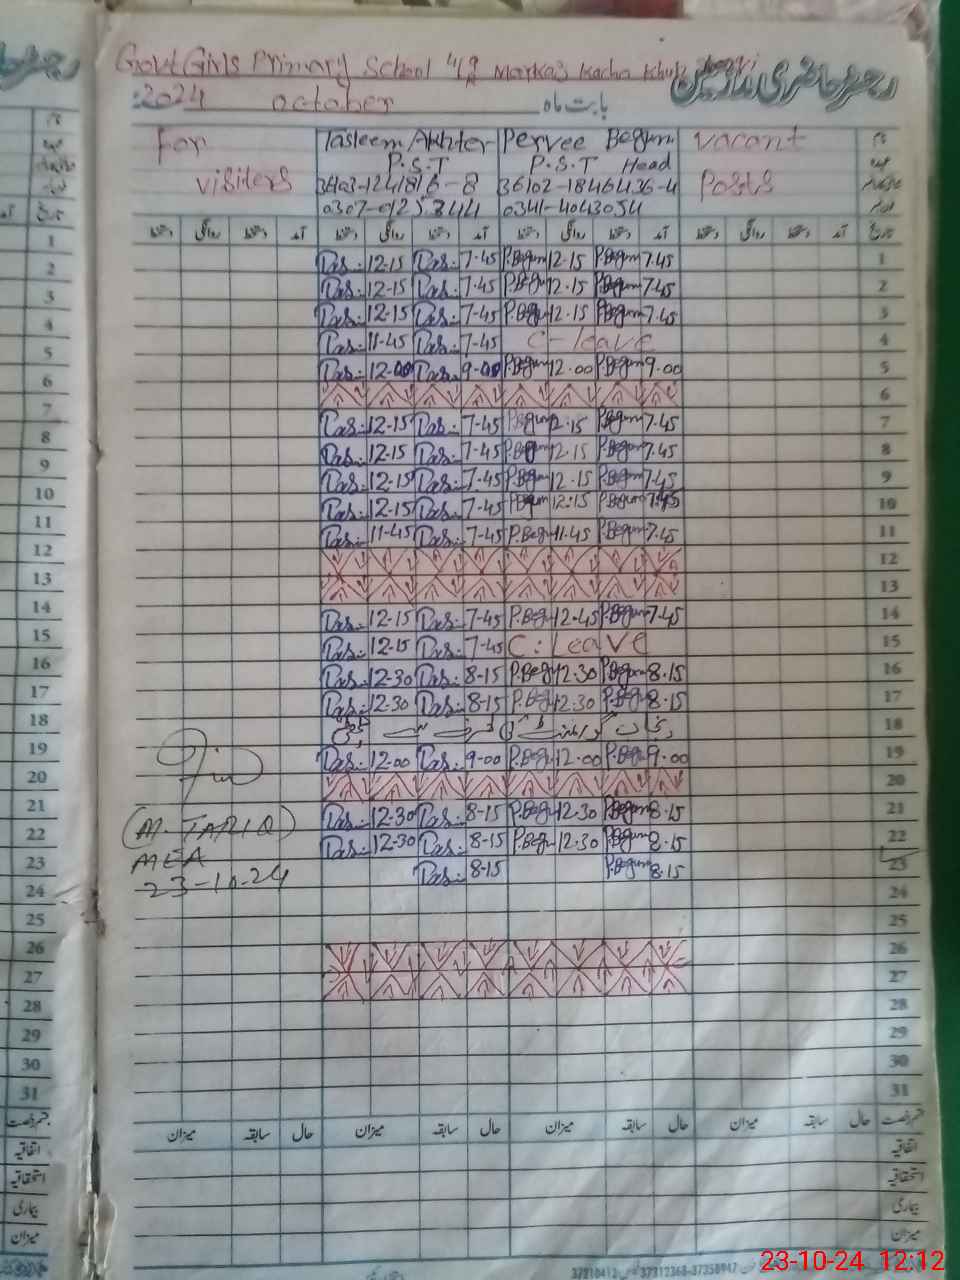 Govt Girls Primary School 49 Markaz Kacha Khuh
رجسٹر حاضری مدرسین
:2024 October بابت ماہ
For visiters
Tasleem Akhter
P.S.T
36103-1241816-8
Pervee Begum
P.S.T Head
36102-1846436-4
0341-4043054
Vacant Posts
دستخط روانگی دستخط آمد دستخط روانگی دستخط آمد دستخط روانگی دستخط آمد دستخط روانگی دستخط آمد تاریخ
1 Tas. 12-15 Tas. 7-45 P.Begum 12.15 P.Begum 7.45 1
2 Tas. 12-15 Tas. 7-45 P.Begum 12.15 P.Begum 7.45 2
3 Tas. 12-15 Tas. 7-45 P.Begum 12.15 P.Begum 7.45 3
4 Tas. 11-45 Tas. 7-45 C-leave 4
5 Tas. 12-00 Tas. 9-00 P.Begum 12.00 P.Begum 9.00 5
6 6
7 Tas. 12-15 Tas. 7-45 P.Begum 12.15 P.Begum 7.45 7
8 Tas. 12-15 Tas. 7-45 P.Begum 12.15 P.Begum 7.45 8
9 Tas. 12-15 Tas. 7-45 P.Begum 12.15 P.Begum 7.45 9
10 Tas. 12-15 Tas. 7-45 P.Begum 12:15 P.Begum 7.45 10
11 Tas. 11-45 Tas. 7-45 P.Begum 11.45 P.Begum 7.45 11
12 12
13 13
14 Tas. 12-15 Tas. 7-45 P.Begum 12.45 P.Begum 7.45 14
15 Tas. 12-15 Tas. 7-45 C: Leave 15
16 Tas. 12-30 Tas. 8-15 P.Begum 12.30 P.Begum 8.15 16
17 Tas. 12-30 Tas. 8-15 P.Begum 12.30 P.Begum 8.15 17
18 18
19 Tas. 12-00 Tas. 9-00 P.Begum 12.00 P.Begum 9.00 19
20 20
21 Tas. 12-30 Tas. 8-15 P.Begum 12.30 P.Begum 8.15 21
22 Tas. 12-30 Tas. 8-15 P.Begum 12.30 P.Begum 8.15 22
23 Tas. 8-15 P.Begum 8.15 23
(M. TARIQ)
MEA
23-10-24
24 24
25 25
26 26
27 27
28 28
29 29
30 30
31 31
میزان سابقہ حال میزان سابقہ حال میزان سابقہ حال میزان سابقہ حال
اتفاقیہ
استحقاقیہ
بیماری
میزان
23-10-24 12:12